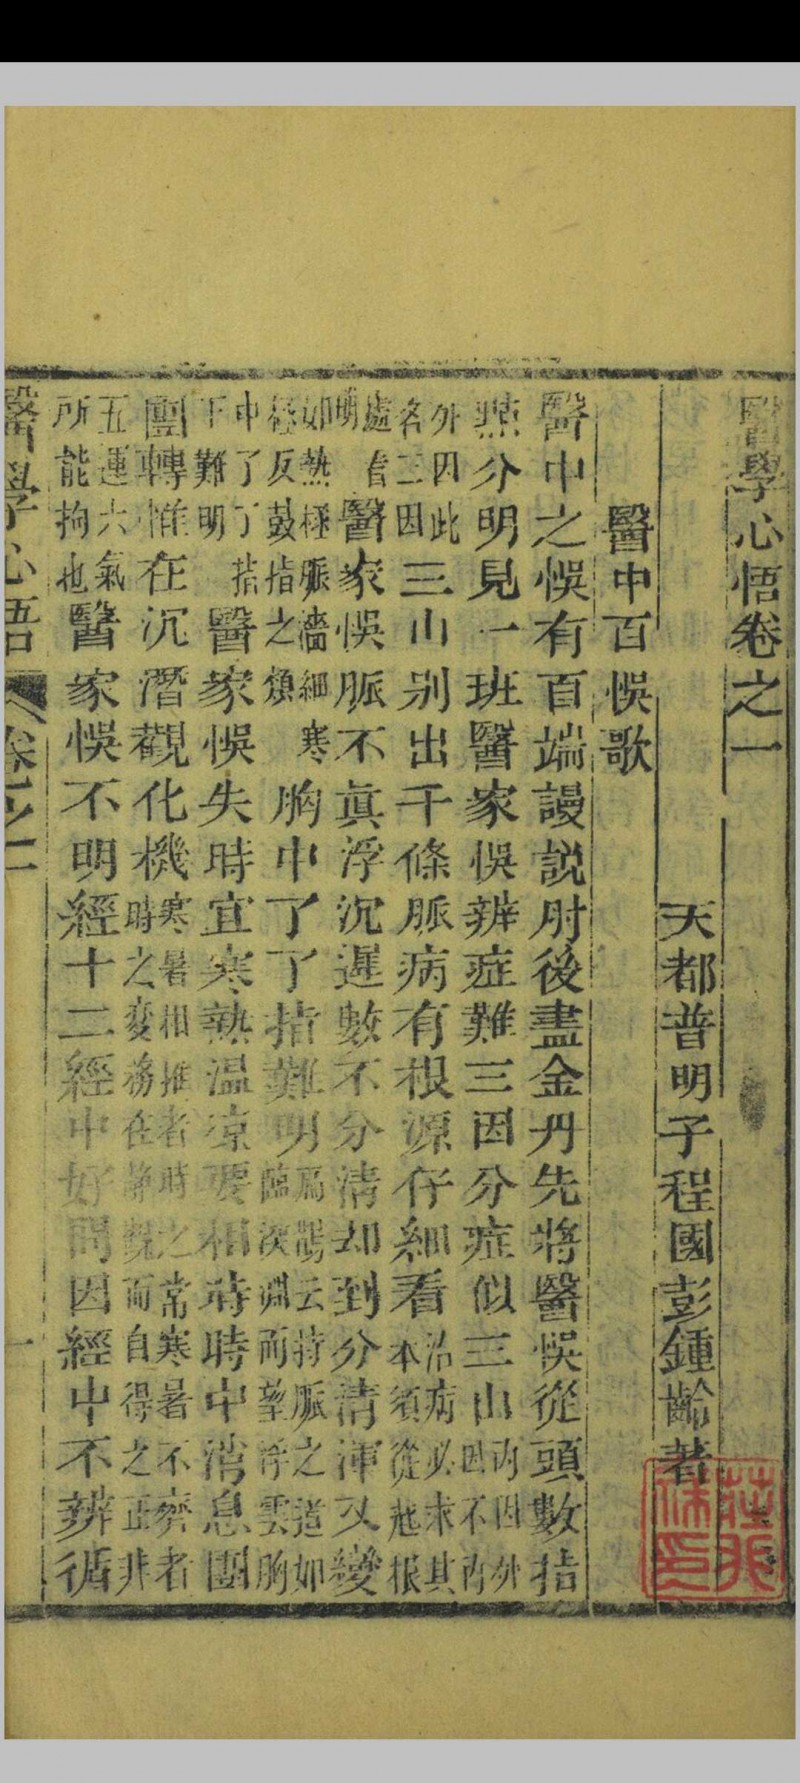 醫學心悟卷之一
天都普明子程國彭鍾齡著
醫中百悞歌
醫中之悞有百端謾説肘後盡金丹先將醫悞從頭數指
點分明見一班醫家悞辨症難三因分症似三山內因外因不內
外因此名三因三山别出千條脈病有根源仔細看治病必求其本須從起根
處看明醫家悞脈不真浮沉遲數不分清却到分清渾又變
如熱極脈濇細寒極反鼓指之類胸中了了指難明扁鵲云持脈之道如臨深淵而望浮雲胸
中了了指下難明醫家悞失時宜寒熱温凉要相時時中消息團
團轉惟在沉潛觀化機寒暑相推者時之常寒暑不齊者時之變務在靜觀而自得之正非
五運六氣所能拘也醫家悞不明經十二經中好問因經中不辨循
醫學心悟 卷之一 一